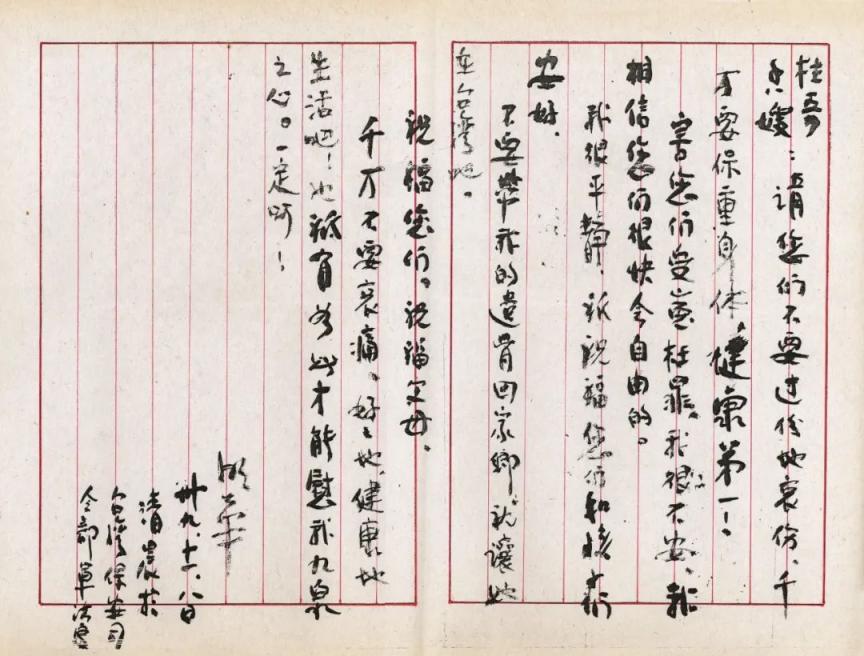 桂
嫂：請您们不要过份地哀伤、千
万要保重身体、健康第一！
害您们受盡枉罪、我很不安、我
相信您们很快会自由的。
我很平静、祝福您们和孩子们
安好、
不要带我的遗骨回家鄉、就讓她
在台湾吧。
祝福您们。祝福父母、
千万不要哀痛、好々地、健康地
生活吧！也祗有如此才能慰我九泉
之心。一定呵！
卅九、十一、八日
清晨於
台湾保安司
令部軍法處